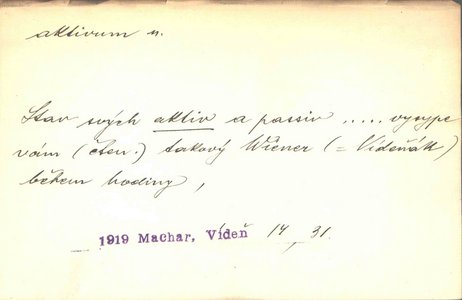 aktivum n.
Stav svých aktiv a passiv ..... vysype
vám (čten.) takový Wiener (= Vídeňák)
během hodiny,
1919 Machar, Vídeň 14, 31.